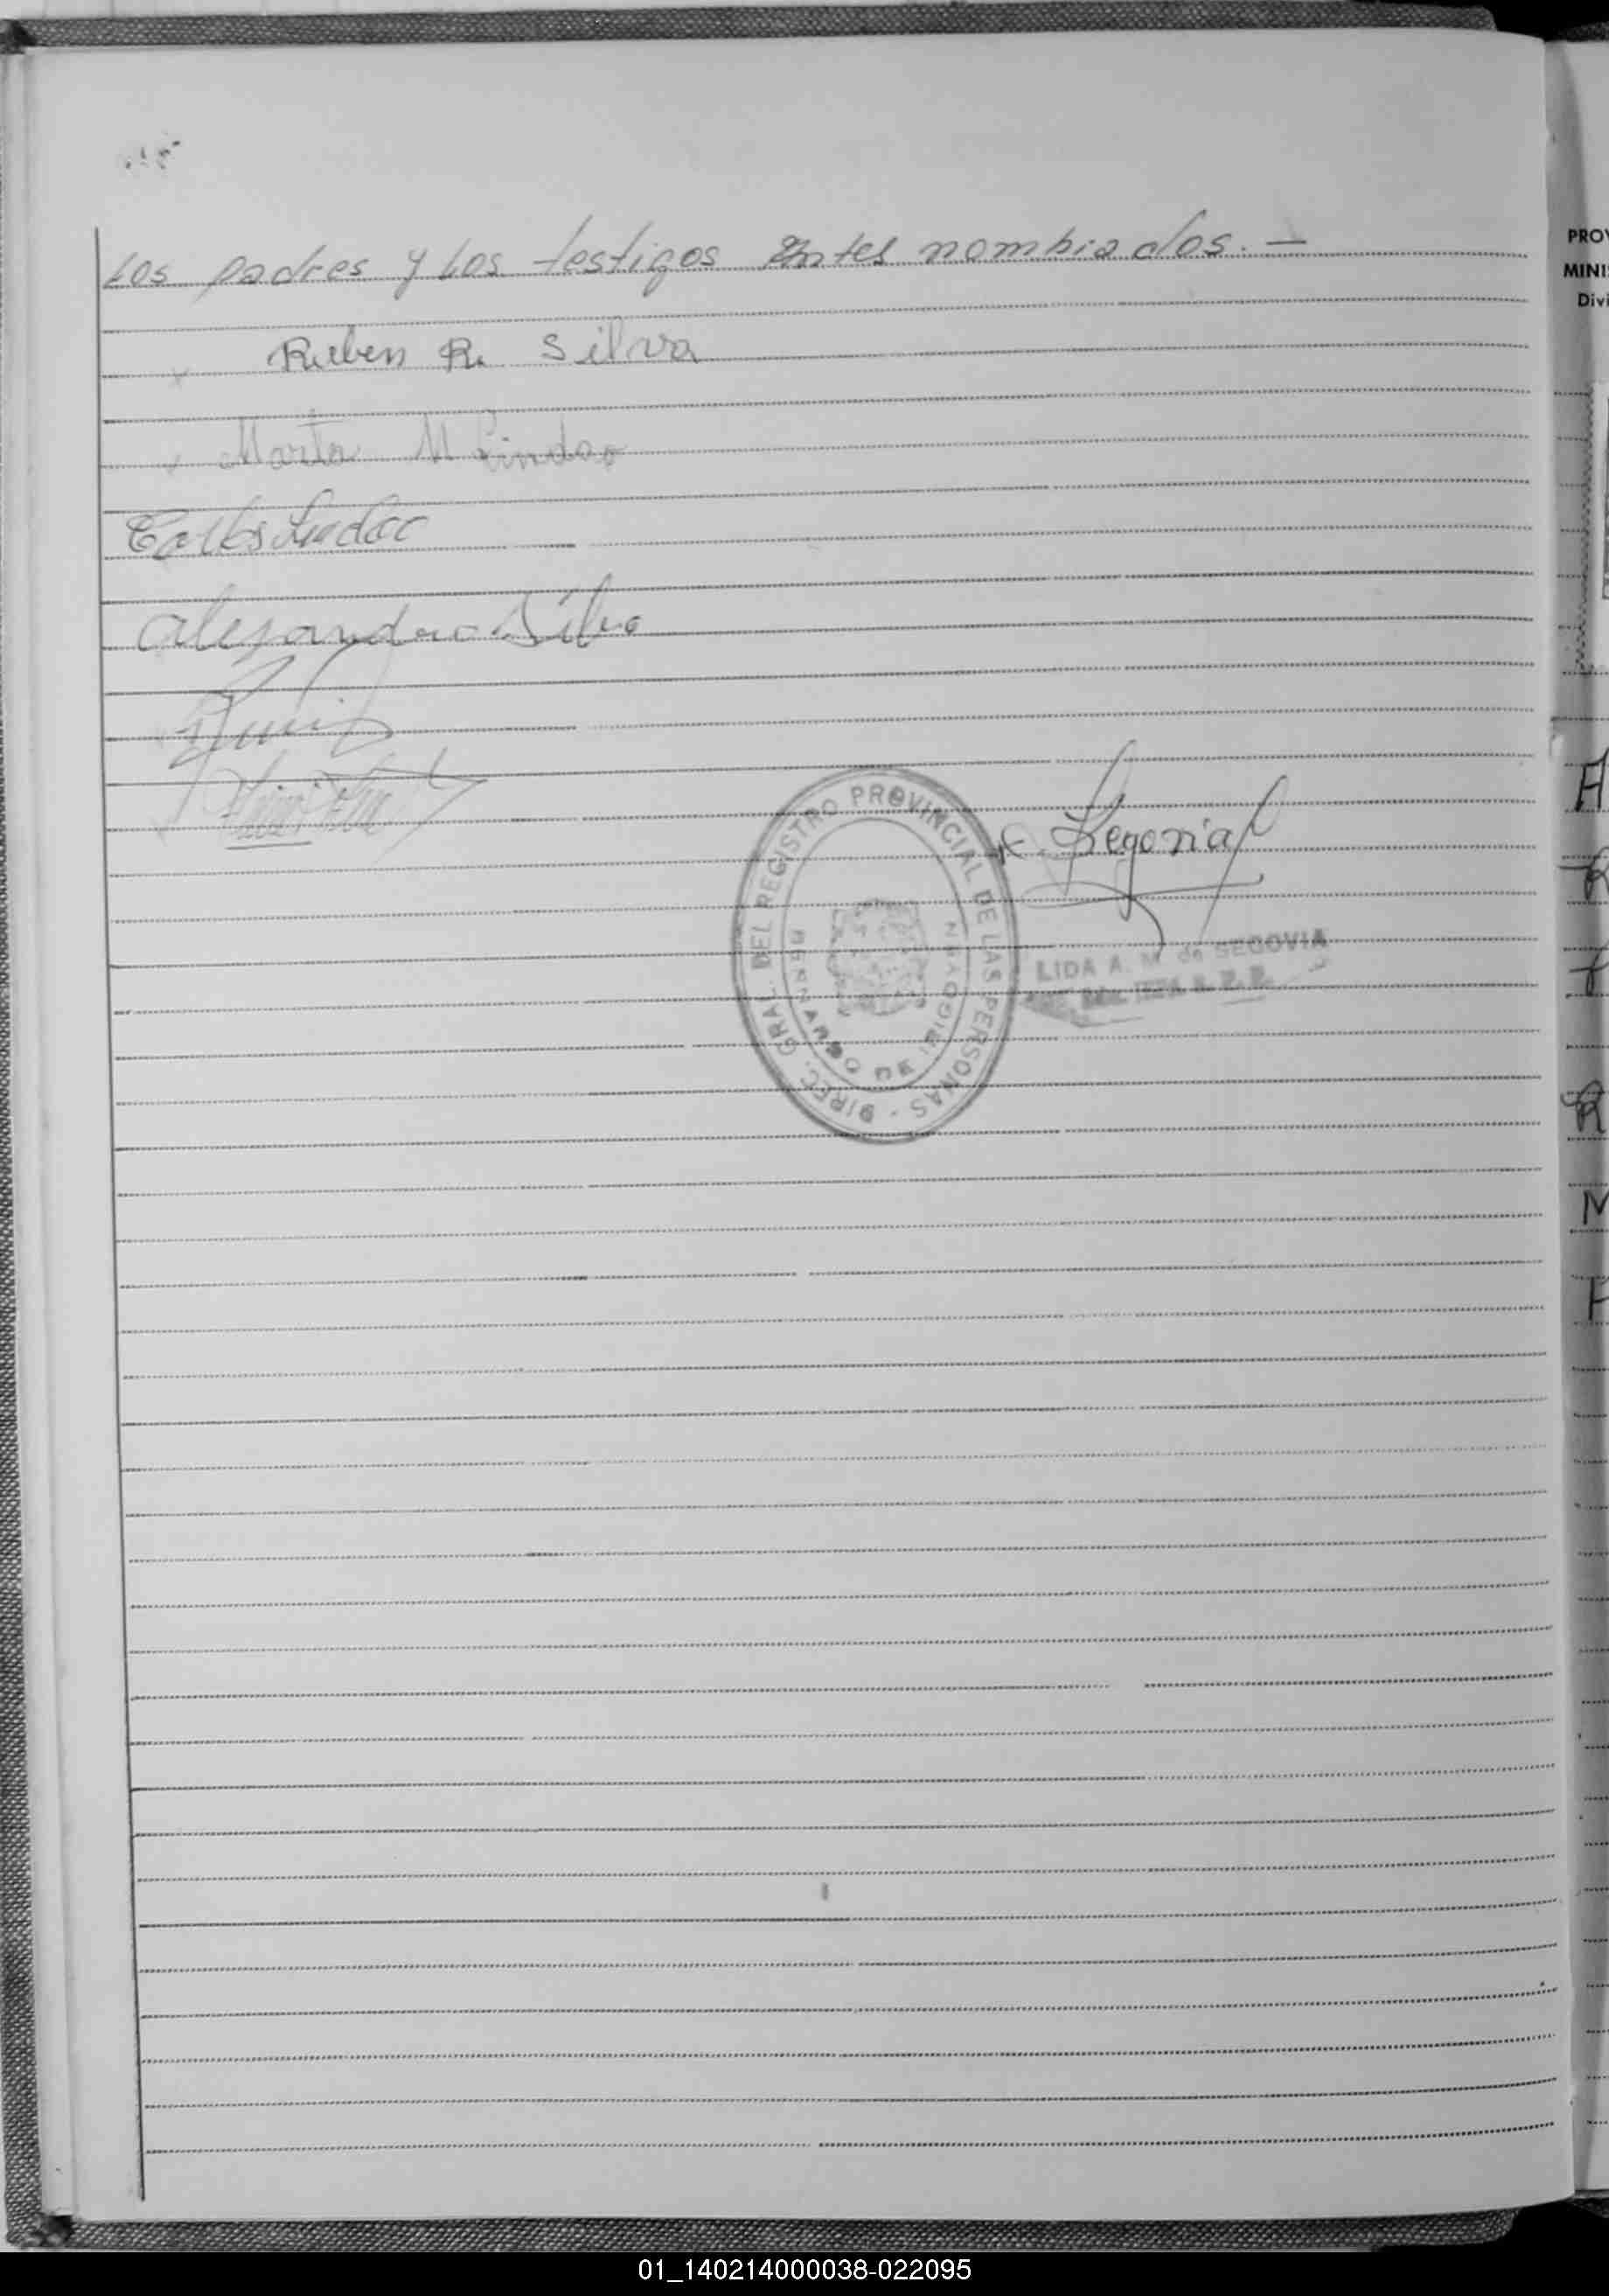 Los padres y Los testigos Antes nombrados. —
Ruben R. Silva
Marta M Lindao
Carlos Lindao
Alejandro Silva
L. Segovia
DIREC. GRAL. DEL REGISTRO PROVINCIAL DE LAS PERSONAS -
BERNARDO DE IRIGOYEN
LIDA A. M. de SEGOVIA
PROV
MINIS
Divi
01_140214000038-022095